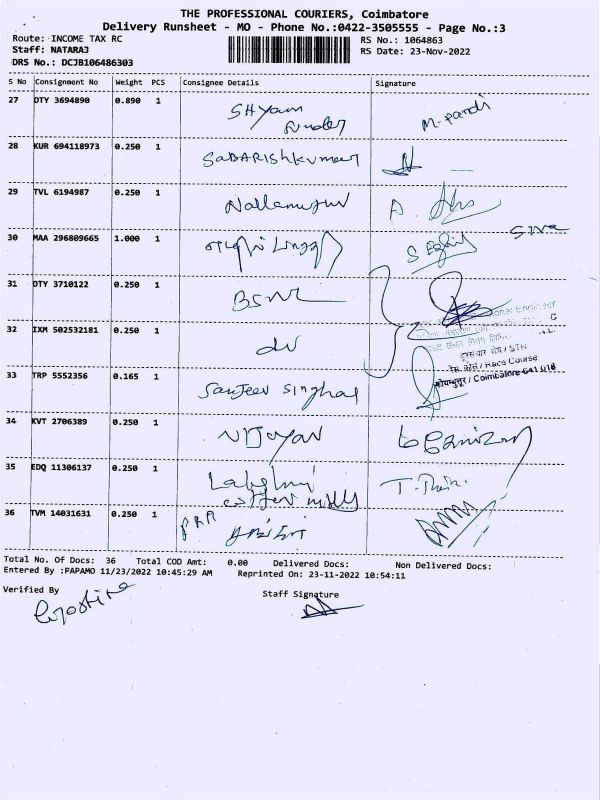 THE PROFESSIONAL COURIERS, Coimbatore
Delivery Runsheet - MO - Phone No.:0422-3505555 - Page No.:3
Route: INCOME TAX RC RS No.: 1064863
Staff: NATARAJ RS Date: 23-Nov-2022
DRS No.: DCJB106486303
S No Consignment No Weight PCS Consignee Details Signature
27 DTY 3694890 0.890 1 SHyam M. Pandi
28 KUR 694118973 0.250 1 SaBARISHkumar
29 TVL 6194987 0.250 1
30 MAA 296809665 1.000 1
31 DTY 3710122 0.250 1 BSNL
32 IXM 502532181 0.250 1 do
33 TRP 5552356 0.165 1 Sanjeev Singhal
34 KVT 2706389 0.250 1 VIJAYAN
35 EDQ 11306137 0.250 1 Lakshmi
36 TVM 14031631 0.250 1
STR
रेस कोर्स / Race Course
कोयम्बत्तूर / Coimbatore-641 018
Total No. Of Docs: 36 Total COD Amt: 0.00 Delivered Docs: Non Delivered Docs:
Entered By :PAPAMO 11/23/2022 10:45:29 AM Reprinted On: 23-11-2022 10:54:11
Verified By Staff Signature